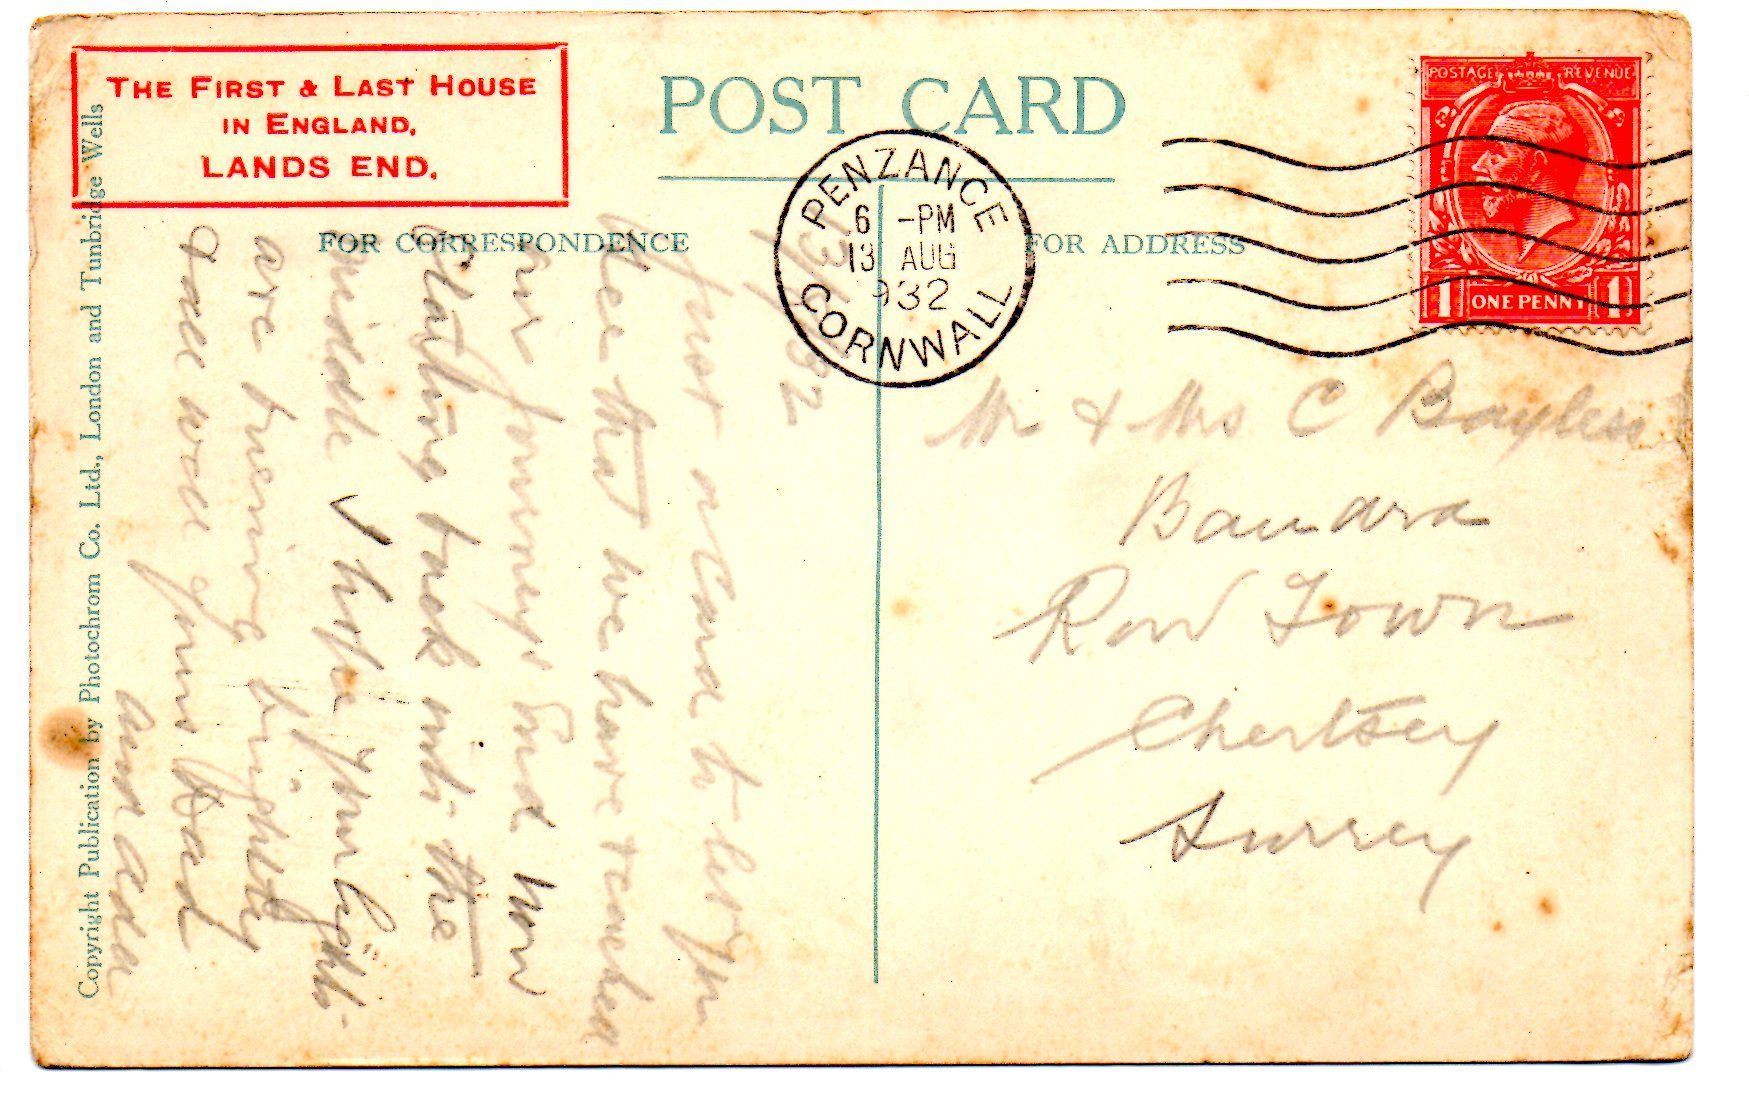 THE FIRST & LAST HOUSE
IN ENGLAND,
LANDS END.
POST CARD
FOR CORRESPONDENCE
FOR ADDRESS
POSTAGE REVENUE
1 ONE PENNY 1
PENZANCE
6 -PM
13 AUG
1932
CORNWALL
Copyright Publication by Photochrom Co. Ltd., London and Tunbridge Wells
13/8/32
Just a card to let you
see that we have reached
our journeys End now
Starting back into the
middle & hope your lights
are burning brightly
& all well your Dad
and Ada
Mr & Mrs C Bayless
Row Town
Chertsey
Surrey